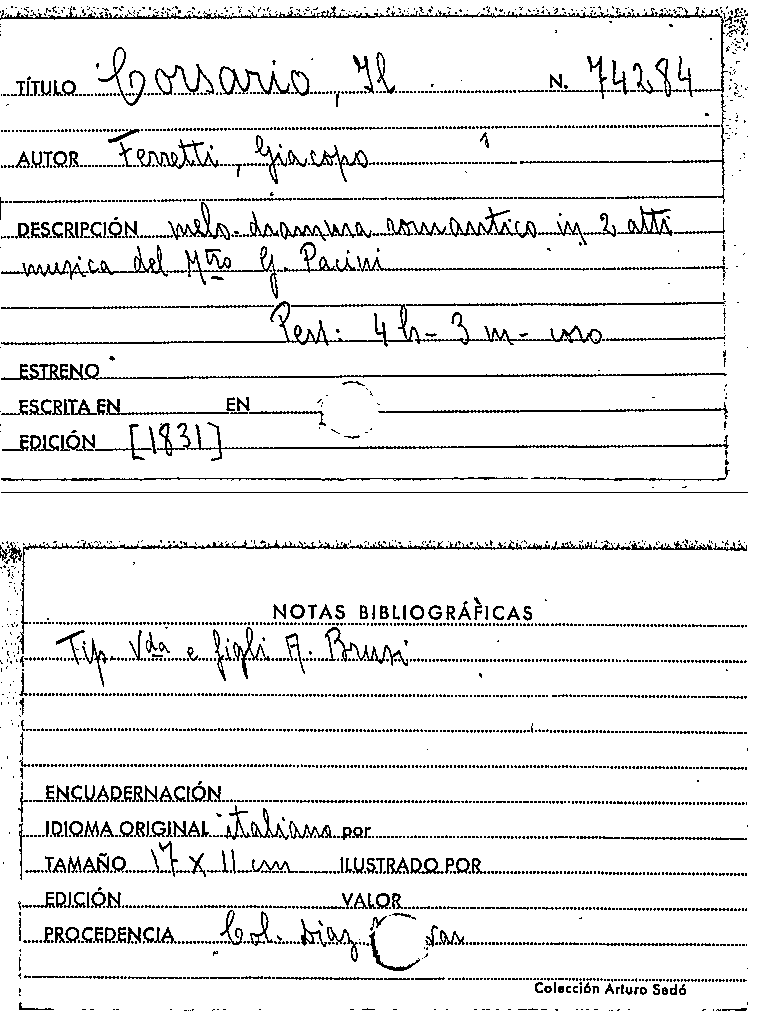 TÍTULO Corsario, Il N. 74284
AUTOR Ferretti, Giacopo
DESCRIPCIÓN melo-dramma romantico in 2 atti
musica del Mtro G. Pacini
Pers: 4 h - 3 m - coro
ESTRENO
ESCRITA EN EN
EDICIÓN [1831]
NOTAS BIBLIOGRÁFICAS
Tip. Vda e figli A. Brusi
ENCUADERNACIÓN
IDIOMA ORIGINAL italiano por
TAMAÑO 17 x 11 cm ILUSTRADO POR
EDICIÓN VALOR
PROCEDENCIA Col. Díaz
Colección Arturo Sedó